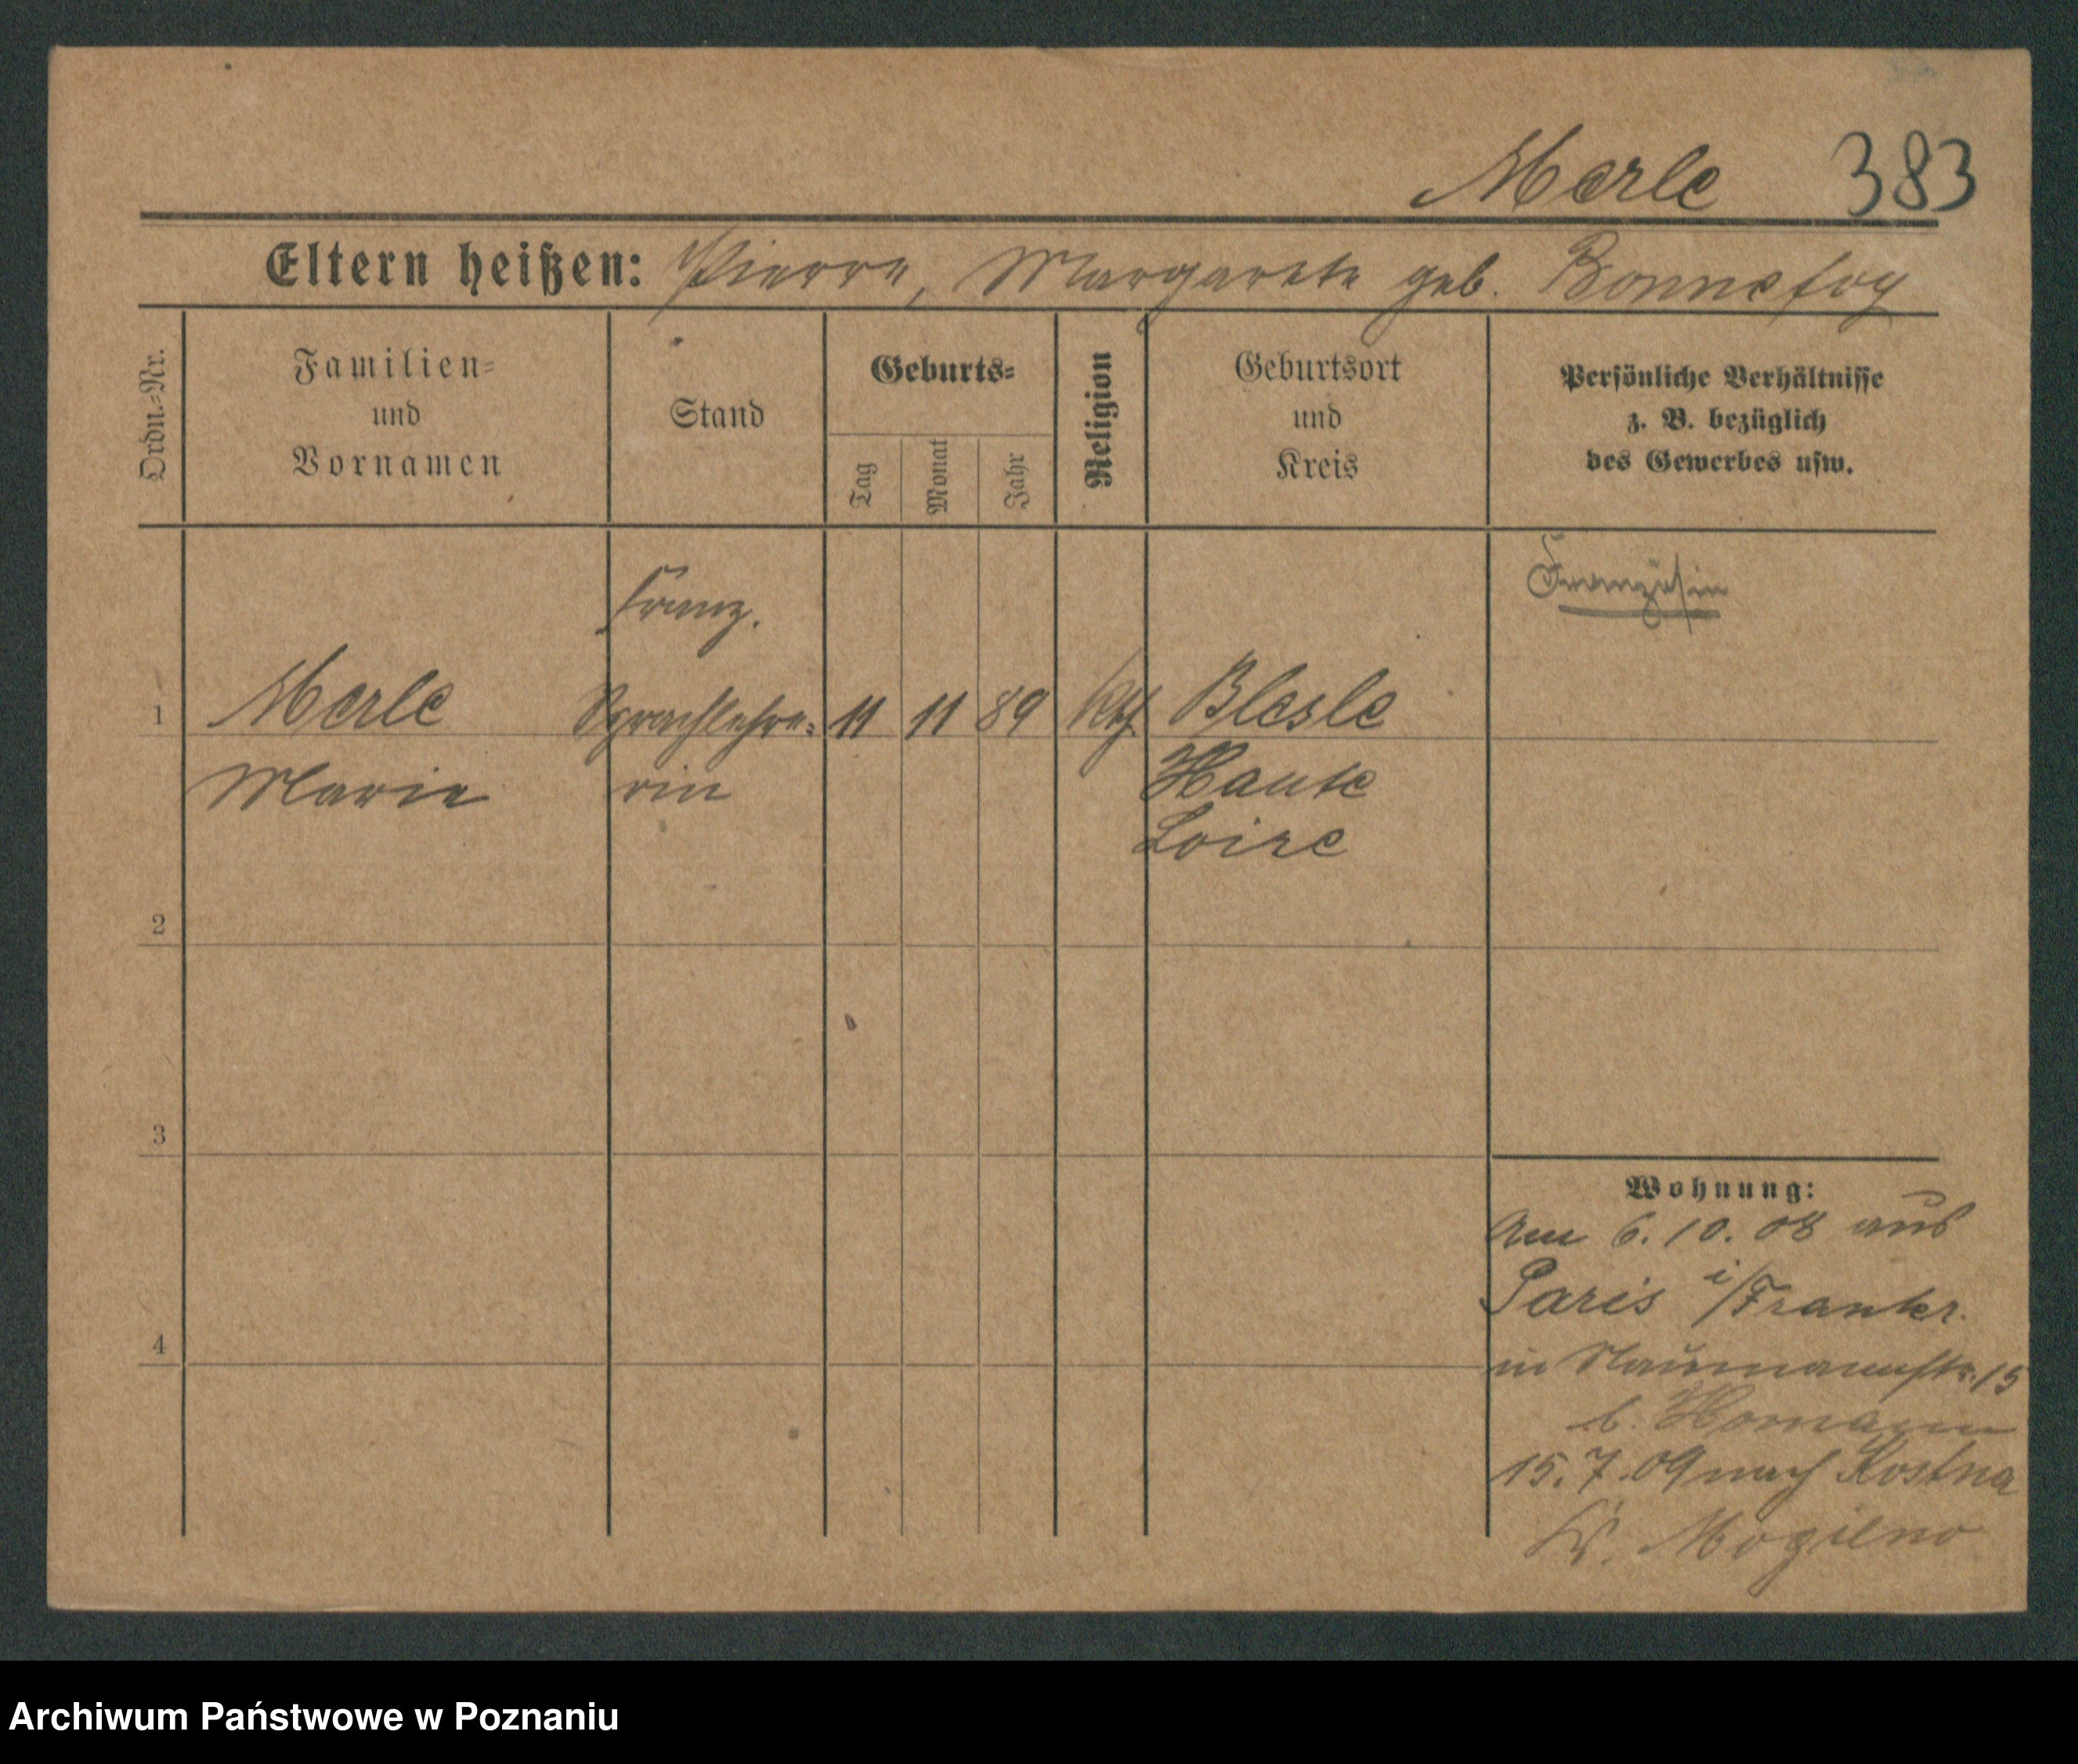 Merle 383
Eltern heißen: Pierre, Margarete geb. Bonnefoy
Ordn.=Nr.
Familien=
und
Vornamen
Stand
Geburts=
Tag
Monat
Jahr
Religion
Geburtsort
und
Kreis
Persönliche Verhältnisse
z. B. bezüglich
des Gewerbes usw.
Französin
franz.
1 Merle Sprachlehre= 11 11 89 kth. Blesle
Marie rin Haute
Loire
2
3
4
Wohnung:
Am 6. 10. 08 aus
Paris i/Frankr.
in Naumannstr. 15
b.
15. 7. 09 nach
Kr. Mogilno
Archiwum Państwowe w Poznaniu